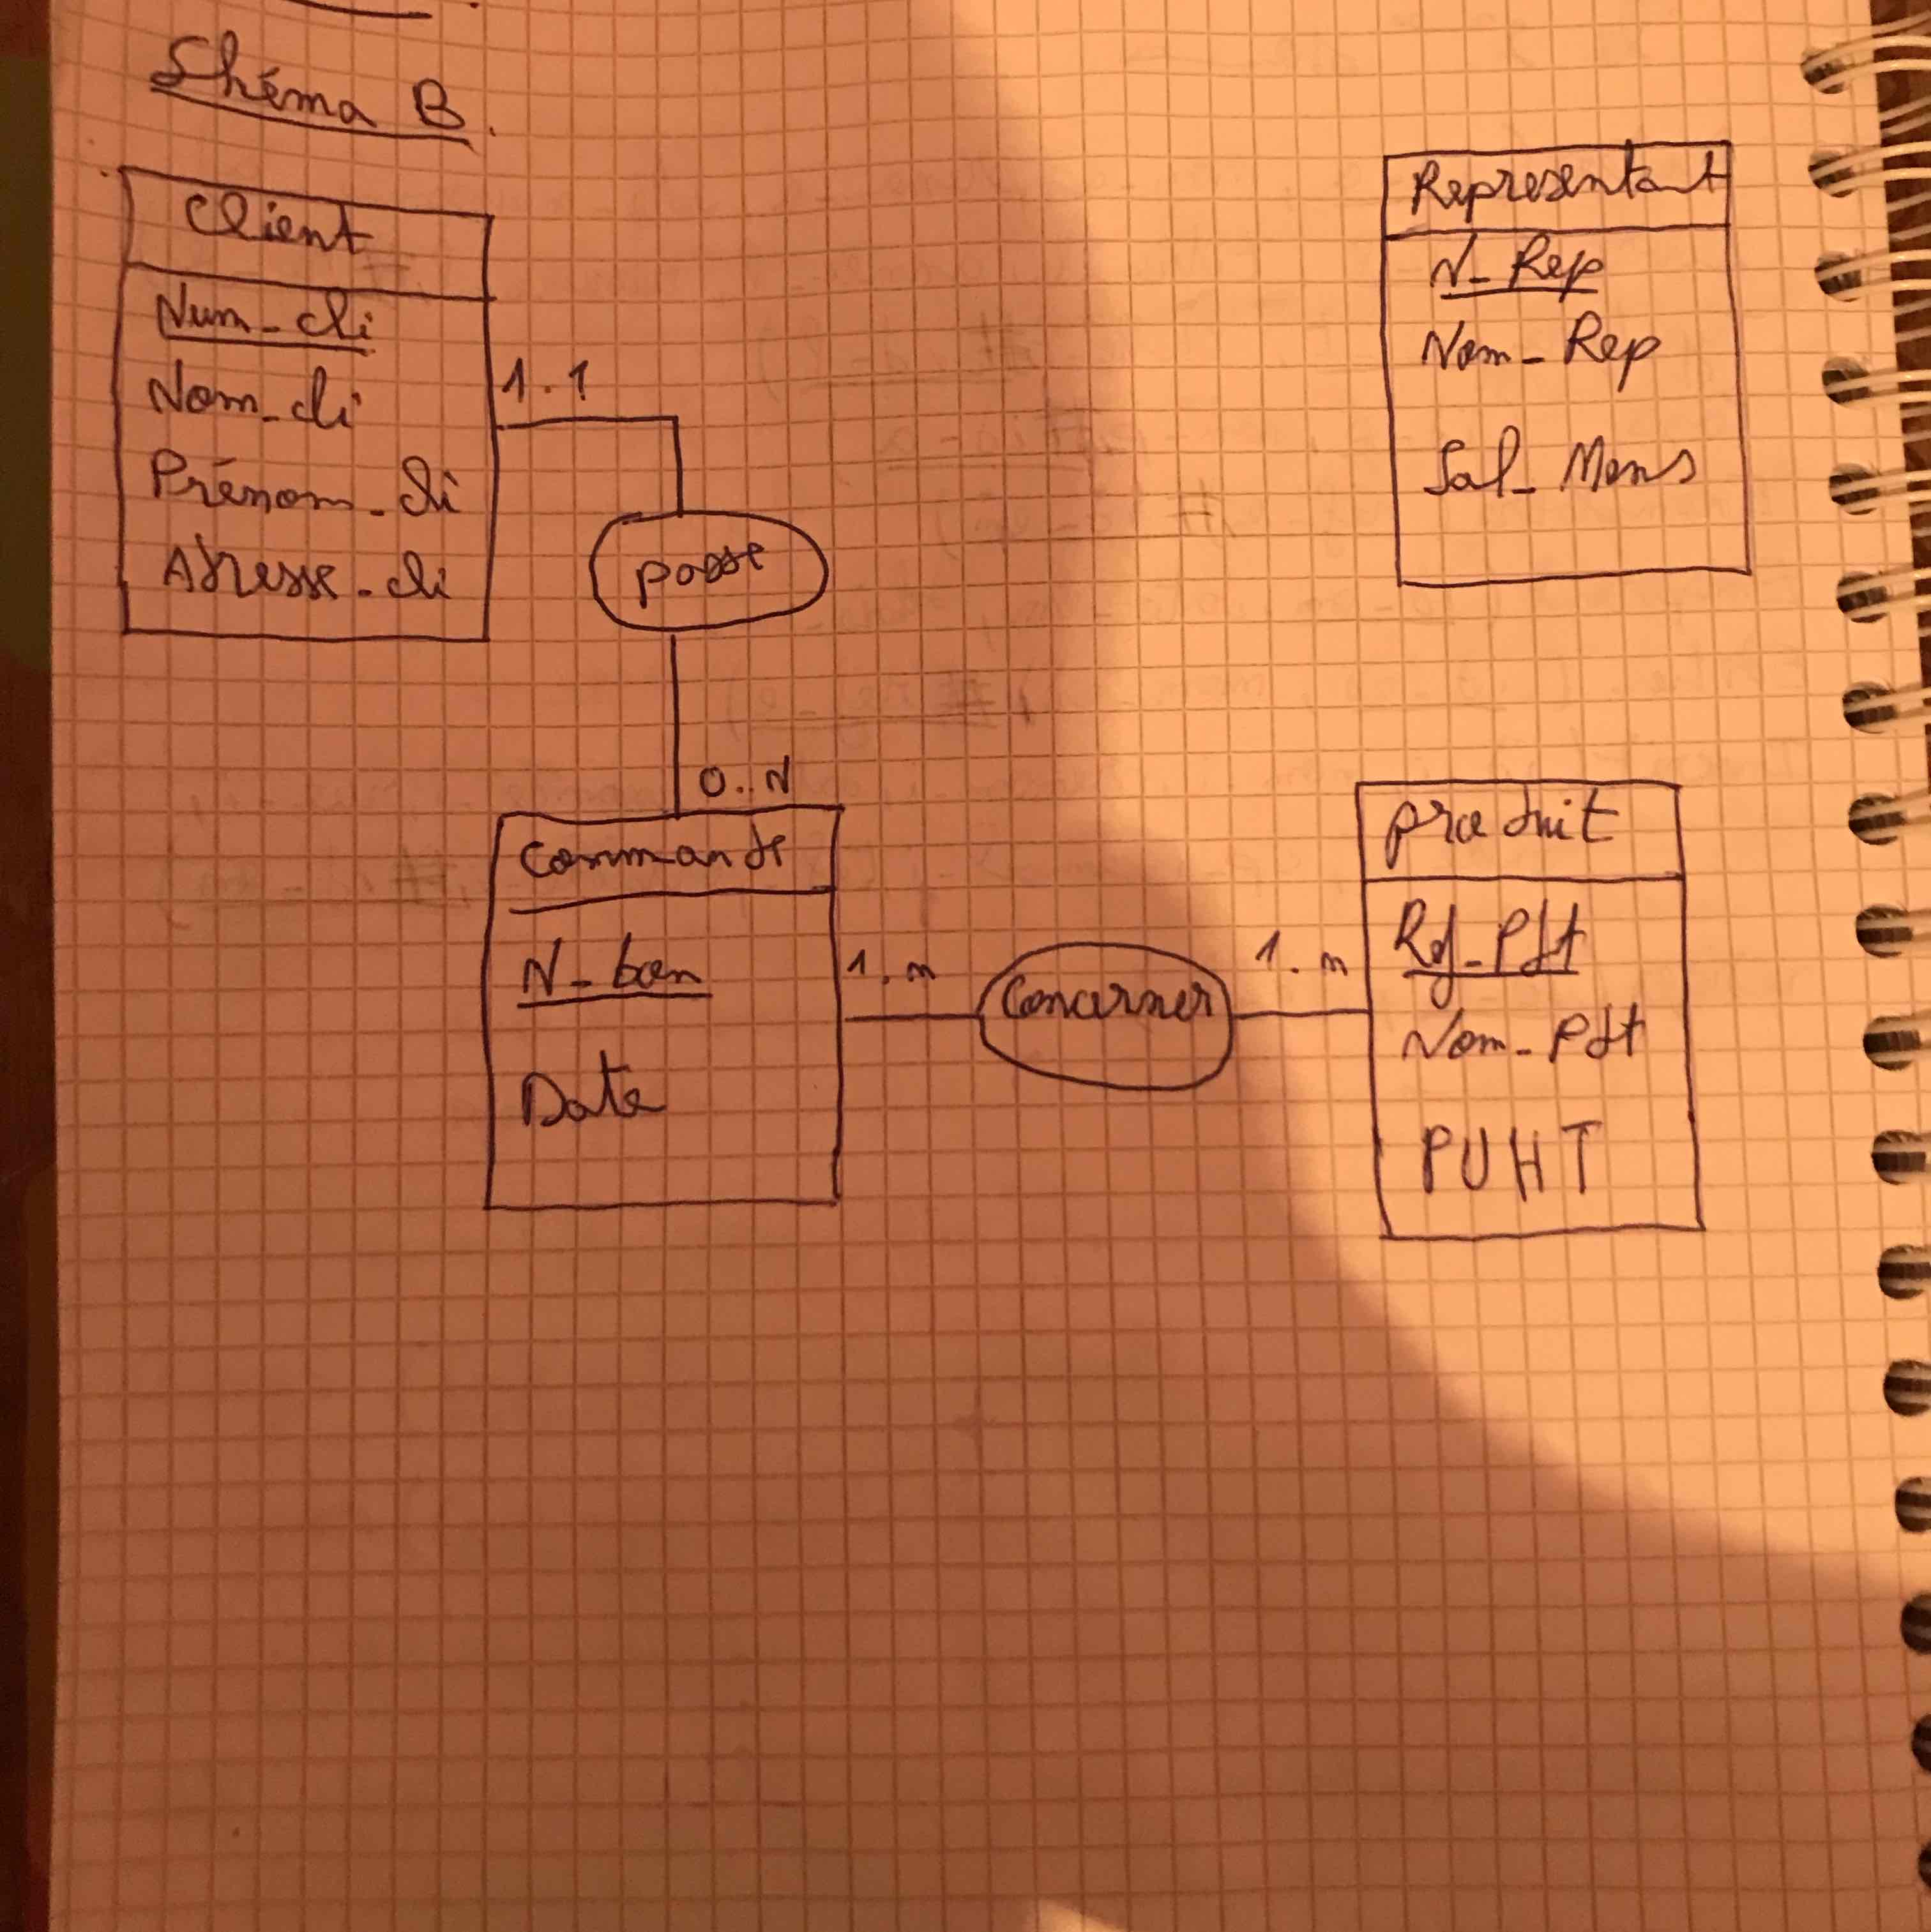 Shéma B.
Client
Num_cli
Nom_cli
Prénom_cli
Adresse_cli
1.1
passe
0..N
Representant
N_Rep
Nom_Rep
Sal_Mens
Commande
N_bon
Date
1.n
Concerner
1.n
produit
Ref_Pdt
Nom_Pdt
PUHT